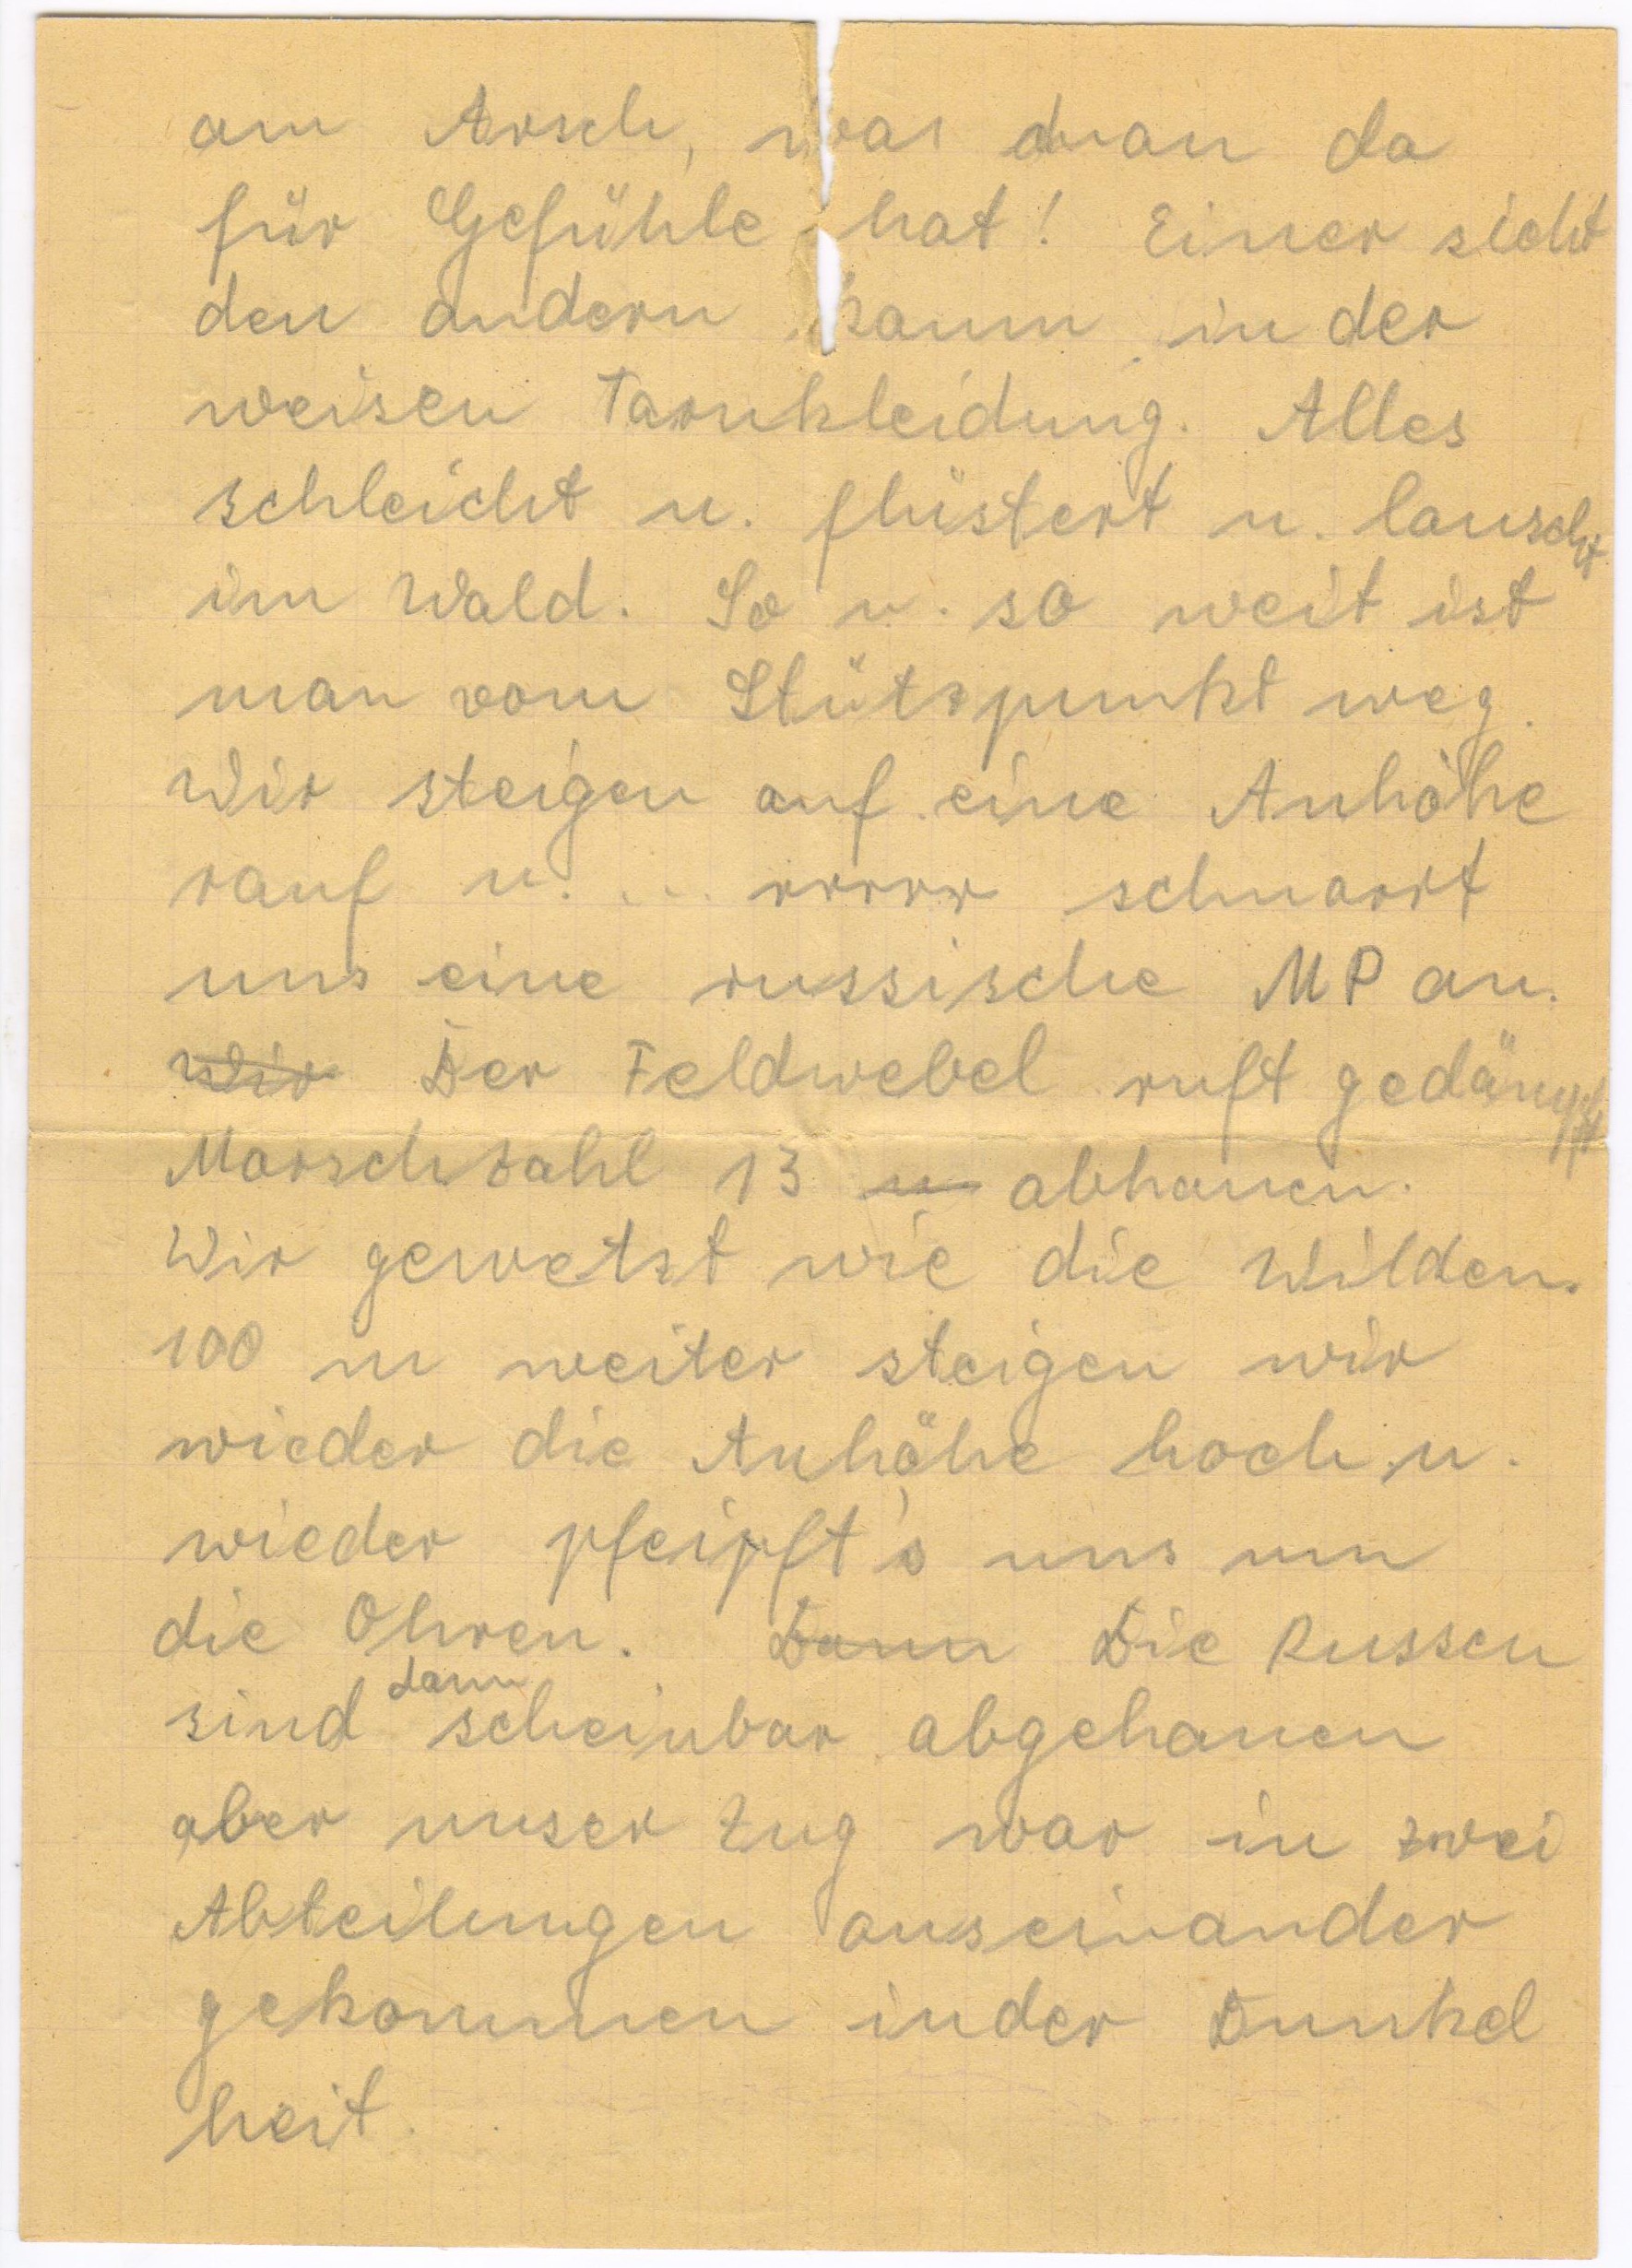 am Arsch, was man da
für Gefühle hat! Einer sieht
den andern kaum in der
weisen Tarnkleidung. Alles
schleicht u. flüstert u. lauscht
im Wald. So u. so weit ist
man vom Stützpunkt weg.
Wir steigen auf eine Anhöhe
rauf u. ... rrrrr schnarrt
uns eine russische MP an.
Wir Der Feldwebel ruft gedämpft
Marschzahl 13 u abhauen.
Wir gewetzt wie die Wilden.
100 m weiter steigen wir
wieder die Anhöhe hoch u.
wieder pfeipft's uns um
die Ohren. Dann Die Russen
sind dann scheinbar abgehauen
aber unser Zug war in zwei
Abteilungen auseinander
gekommen in der Dunkel
heit.